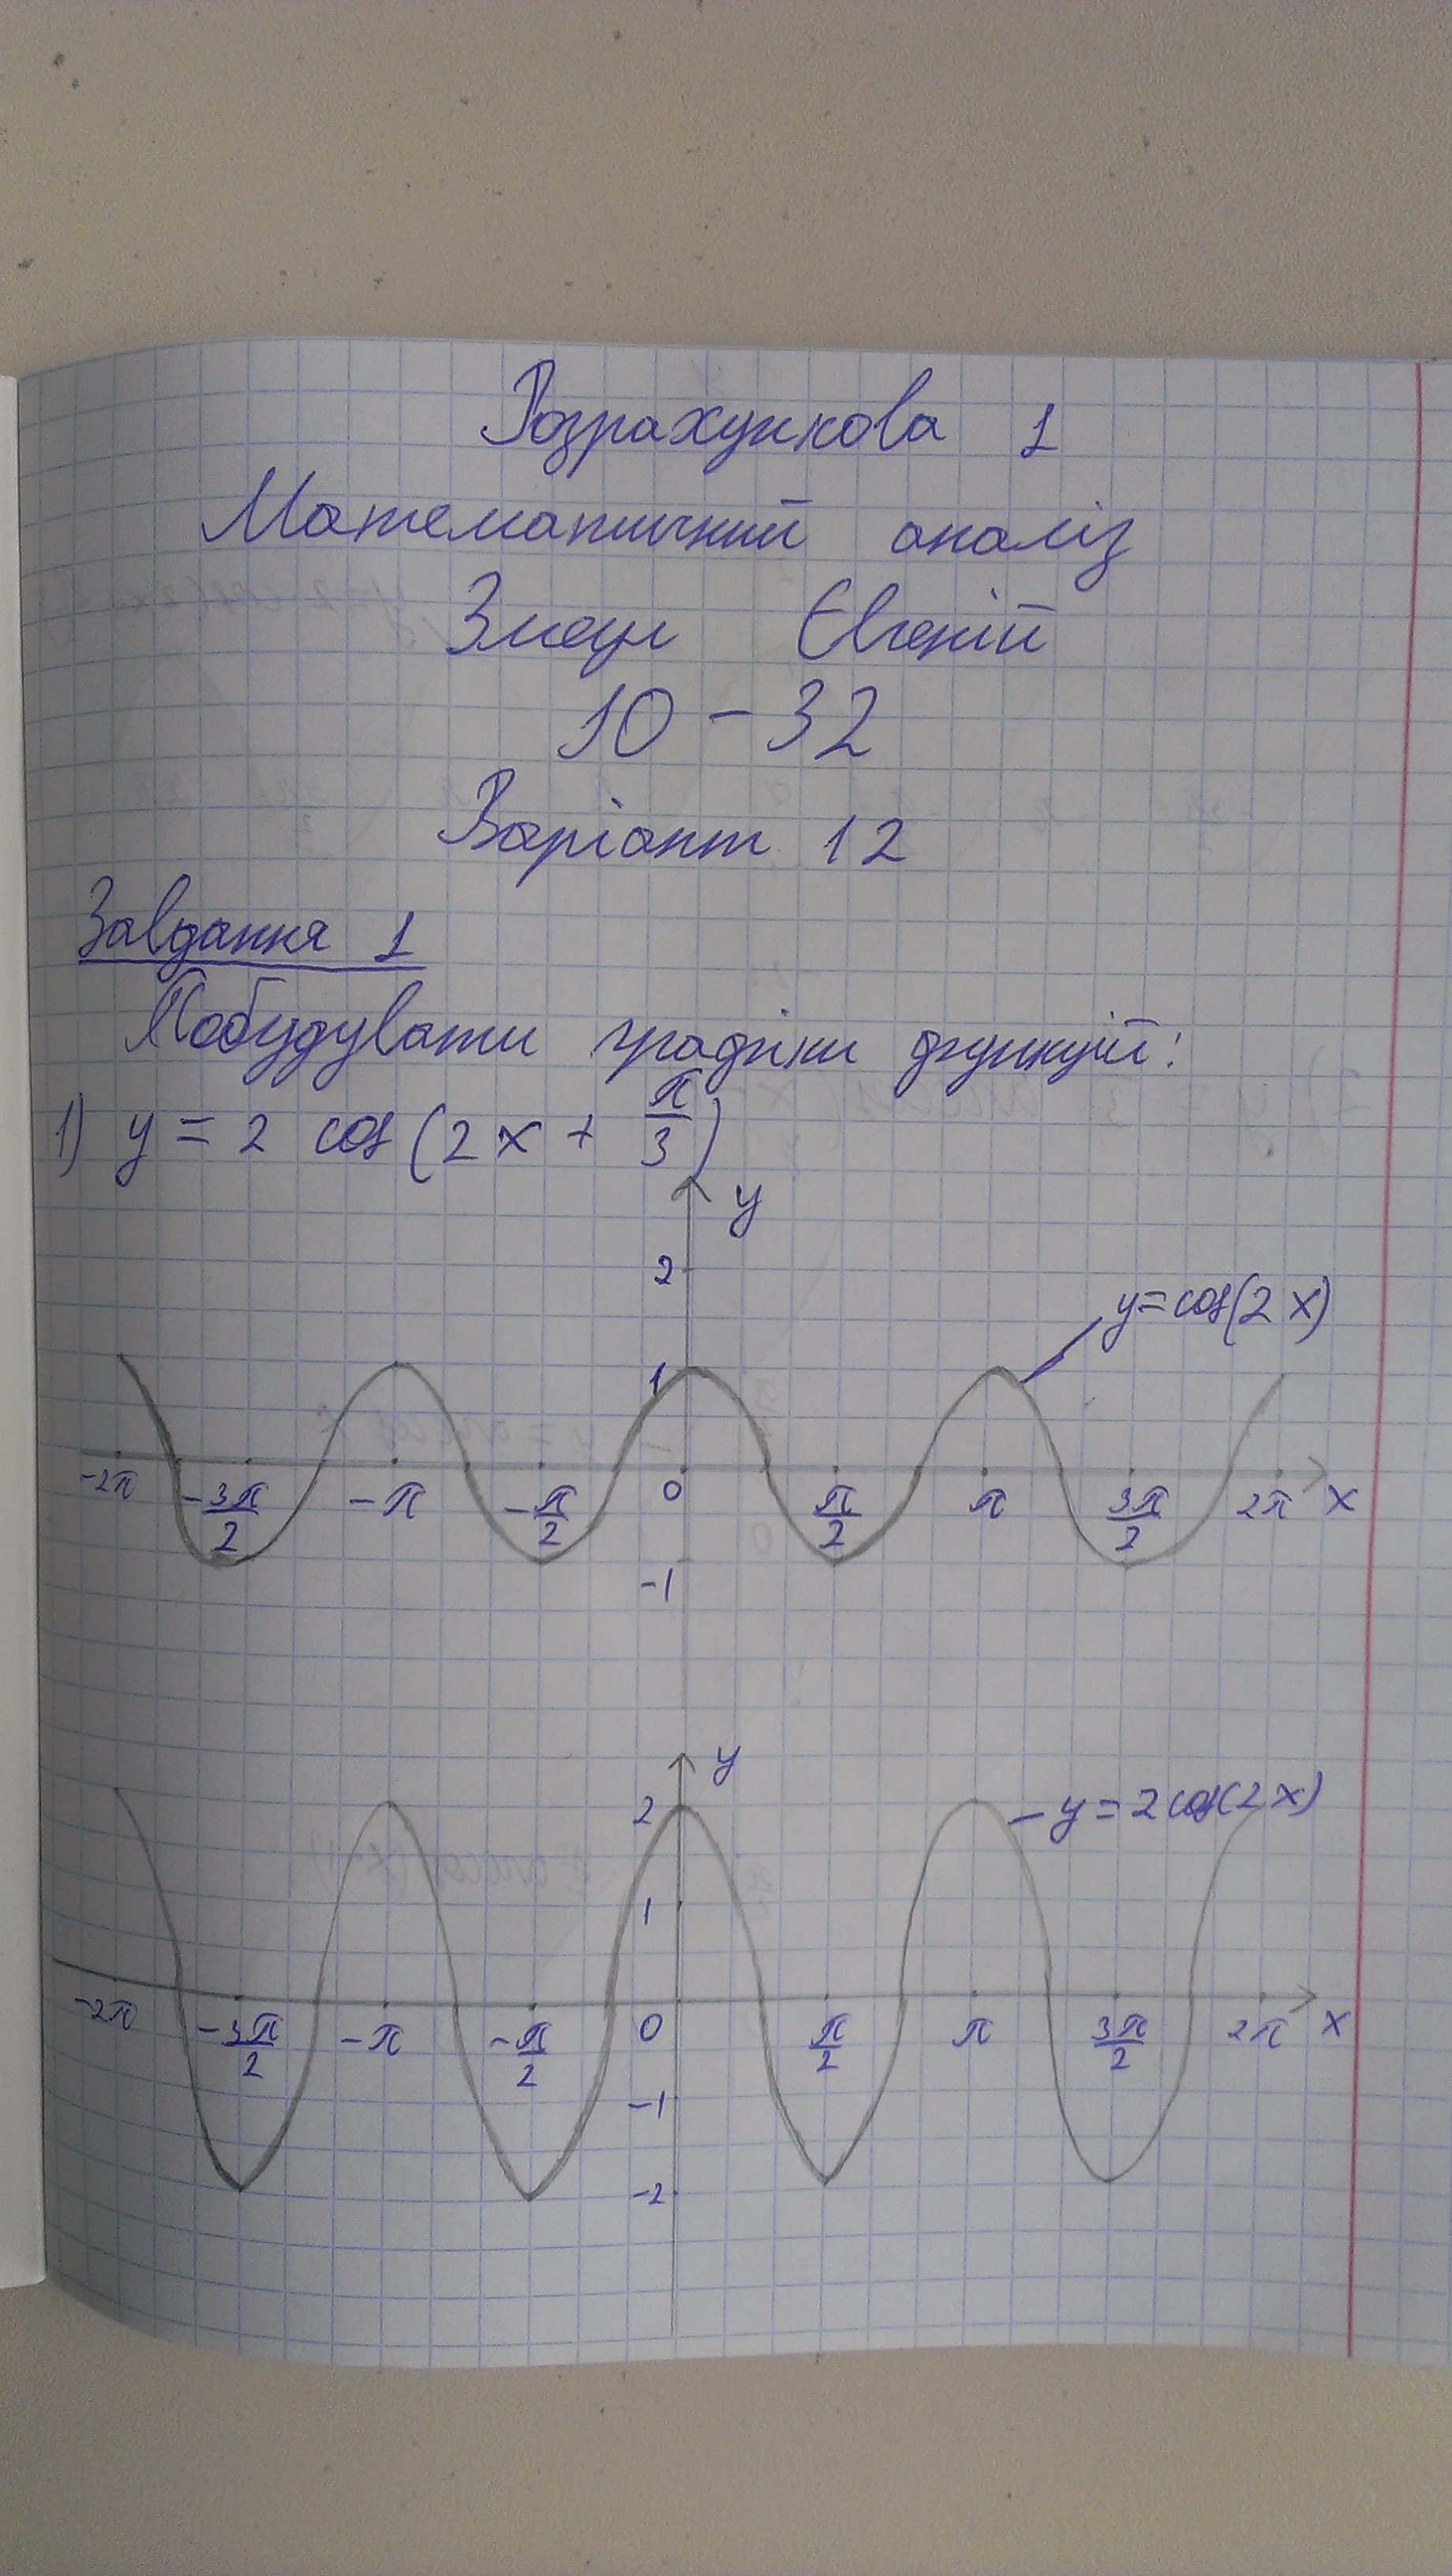 Розрахункова 1
Математичний аналіз
Євгеній
10-32
Варіант 12
Завдання 1
Побудувати графіки функцій:
1) y = 2 cos(2x + π/3)
y
2
y=cos(2x)
1
-2π -3π/2 -π -π/2 0 π/2 π 3π/2 2π x
-1
y
2 y=2cos(2x)
1
-2π -3π/2 -π -π/2 0 π/2 π 3π/2 2π x
-1
-2